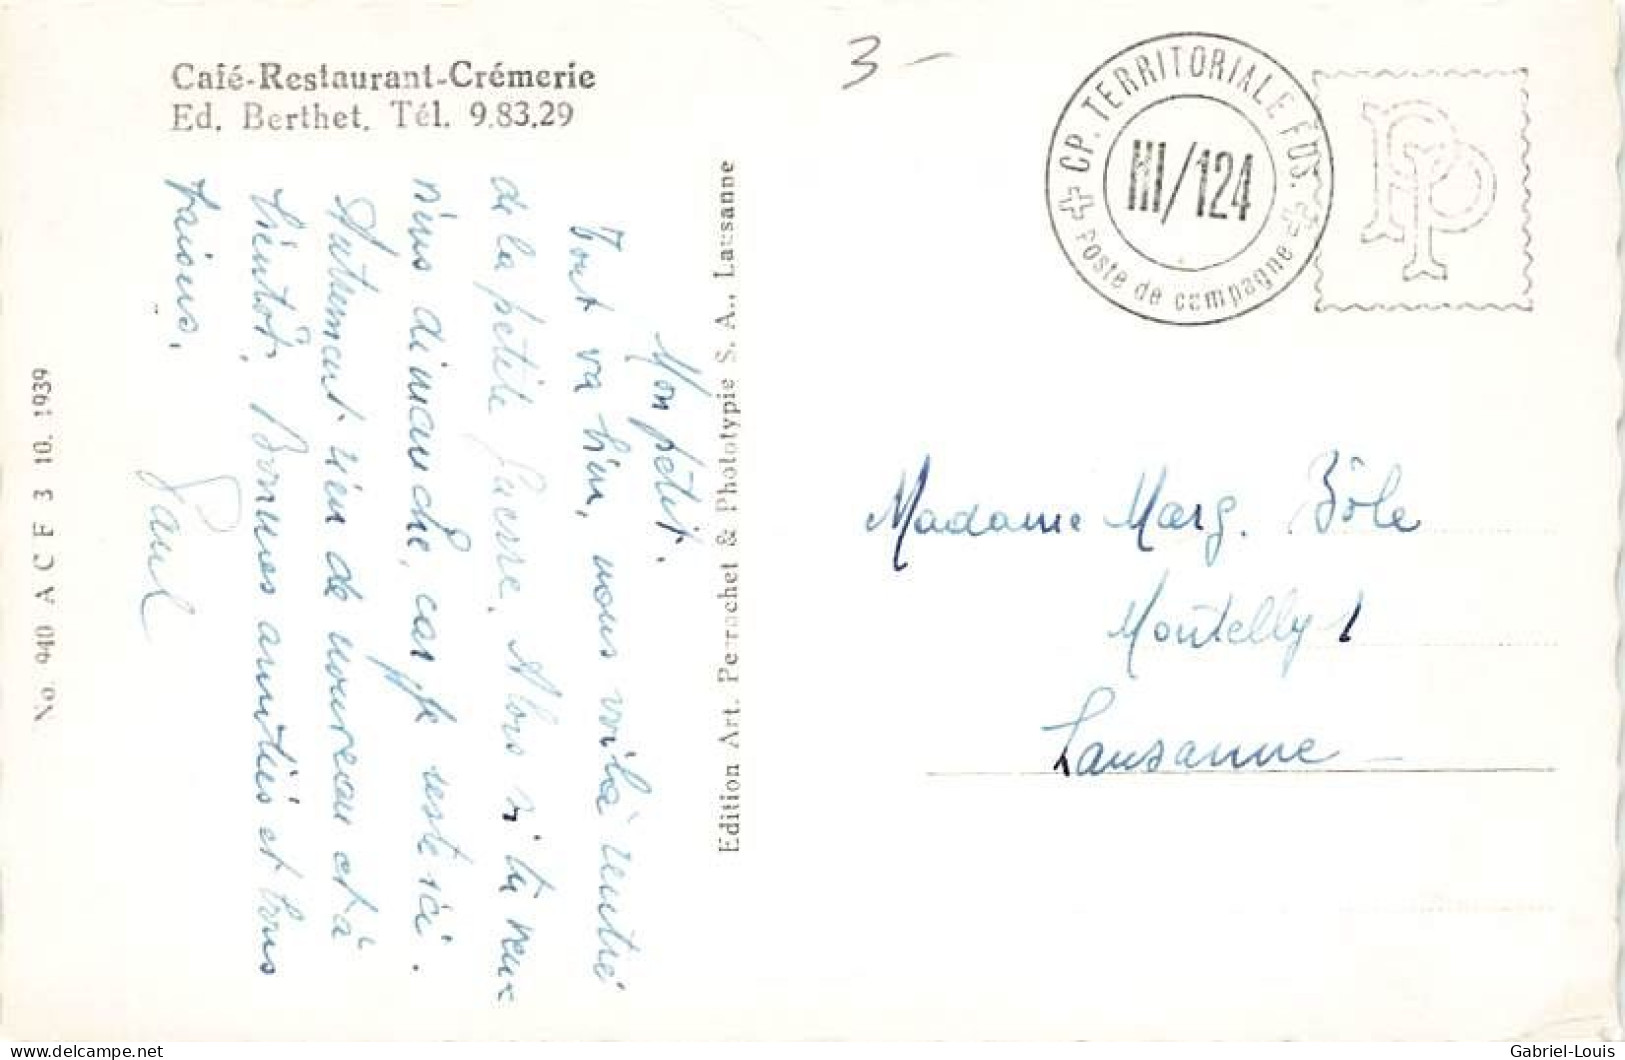 Café-Restaurant-Crémerie
Ed. Berthet, Tél. 9.83.29
Mon petit.
Tout va bien, nous voilà rentré
de la petite guerre. Alors si tu peux
viens dimanche, car je reste ici.
Autrement rien de nouveau et à
bientôt. Bonnes amitiés et bons
baisers.
Paul
No. 940 A C F 3 10. 1939
Edition Art. Perrochet & Phototypie S. A., Lausanne
3-
CP. TERRITORIALE FUS.
III/124
Poste de campagne
PP
Madame Marg. Bôle
Montelly 1
Lausanne
delcampe.net
Gabriel-Louis